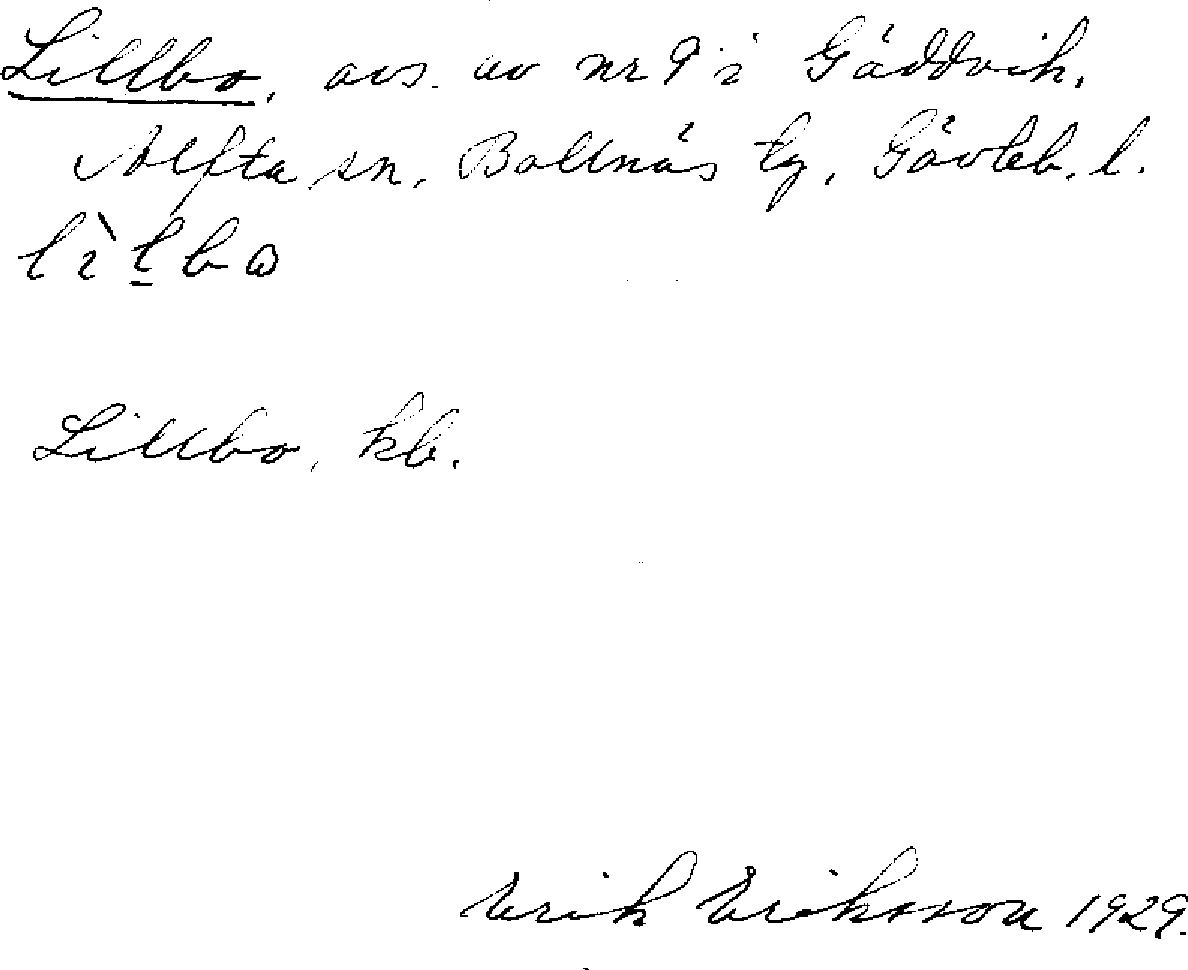 Lillbo, avs. av nr 9 i Gäddvik,
Alfta sn, Bollnäs tg, Gävleb. l.
lìlbɷ
Lillbo, kb.
Erik Eriksson 1929.